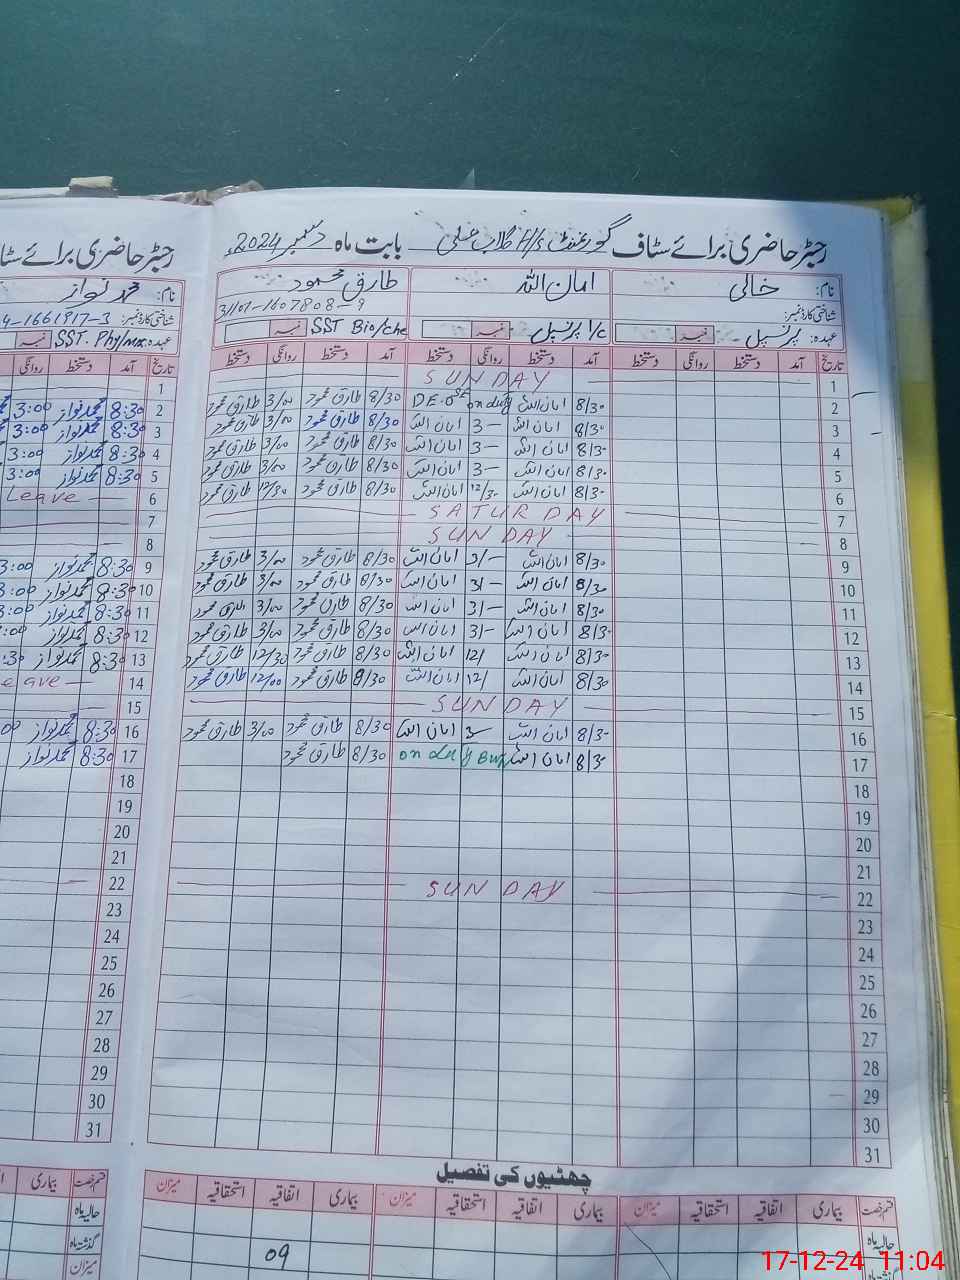 رجسٹر حاضری برائے سٹاف گورنمنٹ H/S گلاب علی بابت ماہ دسمبر 2024ء
نام: خالی امان اللہ طارق محمود
شناختی کارڈ نمبر: 31101-1607808-9
عہدہ: پرنسپل نمبر I/C پرنسپل نمبر SST Bio/che
تاریخ آمد دستخط روانگی دستخط آمد دستخط روانگی دستخط آمد دستخط روانگی دستخط
1 SUNDAY
2 8/30 امان اللہ on duty DEO 8/30 طارق محمود 3/00 طارق محمود
3 8/30 امان اللہ 3- امان اللہ 8/30 طارق محمود 3/00 طارق محمود
4 8/30 امان اللہ 3- امان اللہ 8/30 طارق محمود 3/00 طارق محمود
5 8/30 امان اللہ 3- امان اللہ 8/30 طارق محمود 3/00 طارق محمود
6 8/30 امان اللہ 12/30 امان اللہ 8/30 طارق محمود 12/30 طارق محمود
7 SATURDAY
8 SUNDAY
9 8/30 امان اللہ 3/- امان اللہ 8/30 طارق محمود 3/00 طارق محمود
10 8/30 امان اللہ 3/- امان اللہ 8/30 طارق محمود 3/00 طارق محمود
11 8/30 امان اللہ 3/- امان اللہ 8/30 طارق محمود 3/00 طارق محمود
12 8/30 امان اللہ 3/- امان اللہ 8/30 طارق محمود 3/00 طارق محمود
13 8/30 امان اللہ 12/ امان اللہ 8/30 طارق محمود 12/30 طارق محمود
14 8/30 امان اللہ 12/ امان اللہ 8/30 طارق محمود 12/00 طارق محمود
15 SUNDAY
16 8/30 امان اللہ 3- امان اللہ 8/30 طارق محمود 3/00 طارق محمود
17 8/30 امان اللہ on duty 8/30 طارق محمود
18
19
20
21
22 SUNDAY
23
24
25
26
27
28
29
30
31
چھٹیوں کی تفصیل
قسم رخصت بیماری اتفاقیہ استحقاقیہ میزان بیماری اتفاقیہ استحقاقیہ میزان بیماری اتفاقیہ استحقاقیہ میزان
حالیہ ماہ
09
رجسٹر حاضری برائے
نام: محمد نواز
1661917-3 شناختی کارڈ نمبر:
عہدہ: SST. Phy/max نمبر
تاریخ آمد دستخط روانگی
1
2 8:30 محمد نواز 3:00
3 8:30 محمد نواز 3:00
4 8:30 محمد نواز 3:00
5 8:30 محمد نواز 3:00
6 Leave
7
8
9 8:30 محمد نواز 3:00
10 8:30 محمد نواز 3:00
11 8:30 محمد نواز 3:00
12 8:30 محمد نواز :00
13 8:30 محمد نواز :30
14 eave
15
16 8:30 محمد نواز 00
17 8:30 محمد نواز
18
19
20
21
22
23
24
25
26
27
28
29
30
31
قسم رخصت بیماری
حالیہ ماہ
گذشتہ ماہ
میزان
17-12-24 11:04